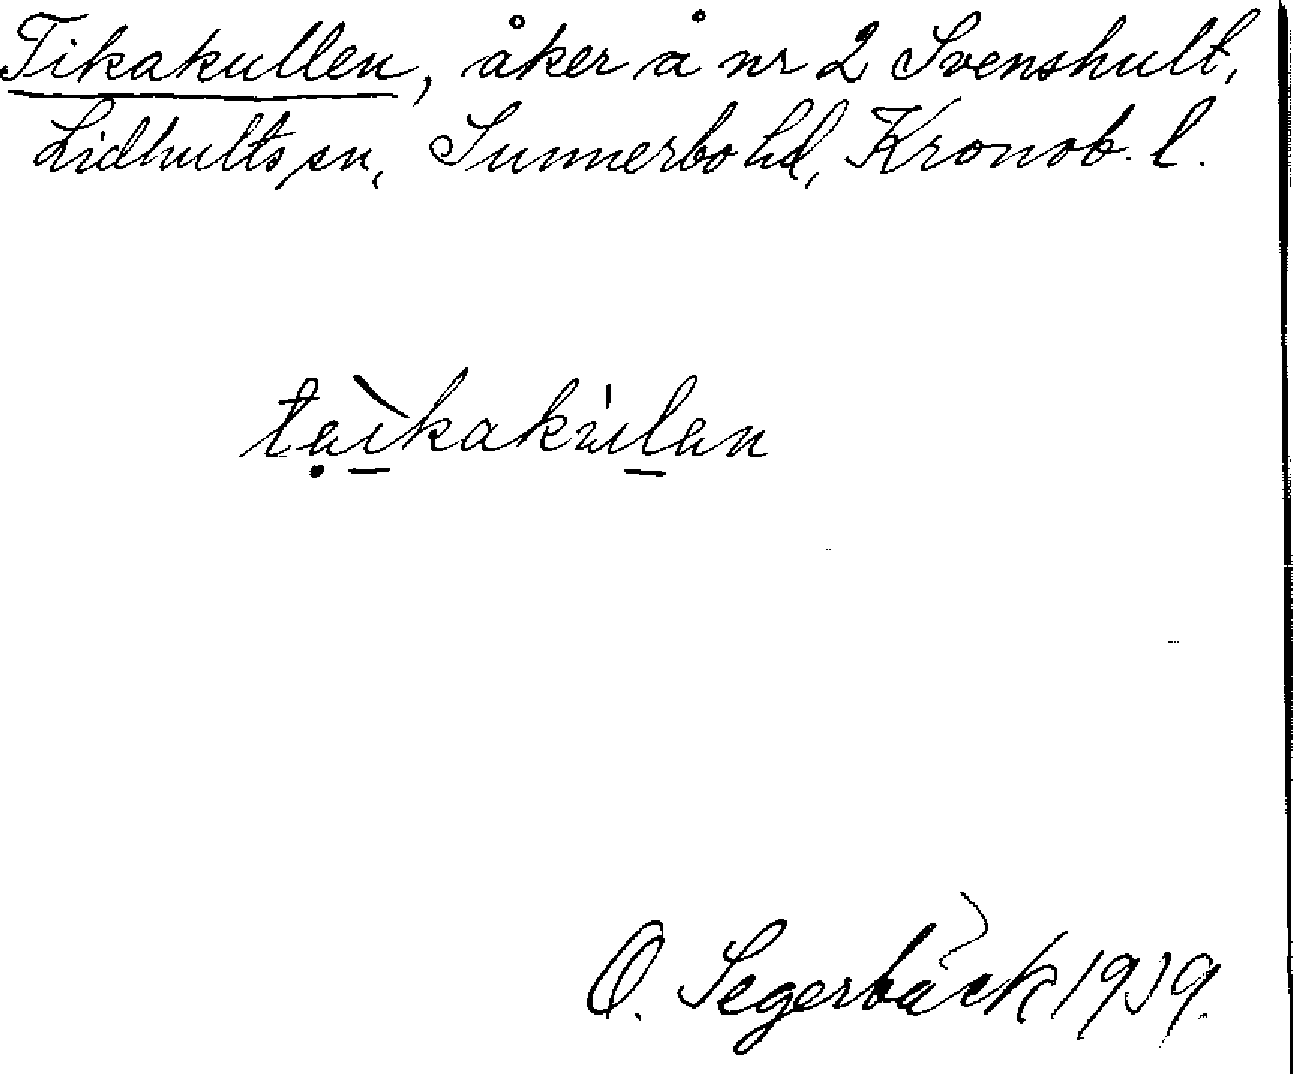 Tikakullen, åker å nr 2 Svenshult,
Lidhults sn, Sunnerbo hd, Kronob. l.
tạì̱kaku̍ḻan
O. Segerbäck 1939.